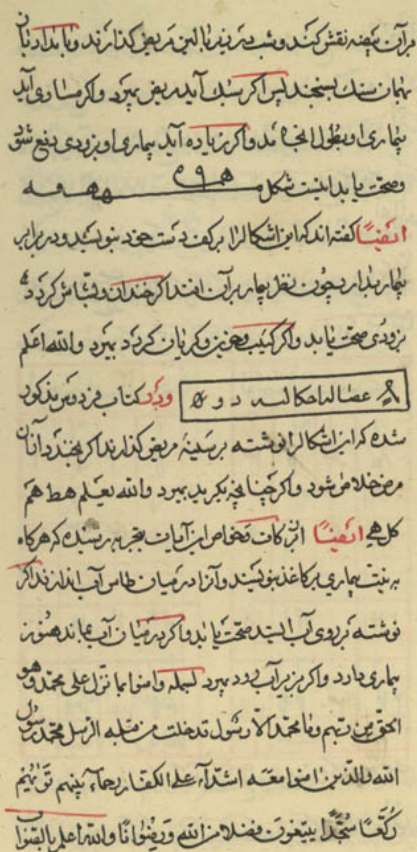 بر آن بیضه نقش کنند و شب در زیر بالین مریض گذارند و بامداد با آن
همان سنک بسنجند پس اگر سبک آید مریض بمیرد و اگر مساوی آید
بیماری او بطول انجامد و اگر زیاده آید بیماری او بزودی دفع شود
و صحت یابد اینست شکل
ایضاً گفته اند که این اشکال را بر کف دست خود بنویسد و در برابر
بیمار بدارد چون نظر بیمار بر آن افتد اگر خندان و بشاش گردد
بزودی صحت یابد و اگر کئیب و حزین و گریان گردد بمیرد و الله اعلم
و در کتاب فردوس مذکور
شده که این اشکال را نوشته بر سینه مریض گذارند اگر بخندد از آن
مرض خلاص شود و اگر چنانچه بگرید بمیرد و الله یعلم هط هم
کل هی ایضاً از برکات و خواص این آیات بتجربه رسیده که هرگاه
به نیت بیماری بر کاغذ بنویسند و آنرا در میان طاس آب اندازند اگر
نوشته بر روی آب ایستد صحت یابد و اگر در میان آب بماند هنوز
بیماری دارد و اگر در زیر آب رود بمیرد بسمله و امنوا بما نزل علی محمد و هو
الحق من ربهم و ما محمد الا رسول قد خلت من قبله الرسل محمد رسول
الله و الذین امنوا معه اشدآء علی الکفار رحماء بینهم تریهم
رکعاً سجداً یبتغون فضلا من الله و رضوانا و الله اعلم بالصواب